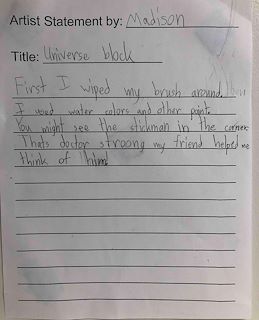 Artist Statement by: Madison
Title: Universe block
First I wiped my brush around.
I used water colors and other paint.
You might see the stickman in the corner
Thats doctor stroong my friend helped me
think of him